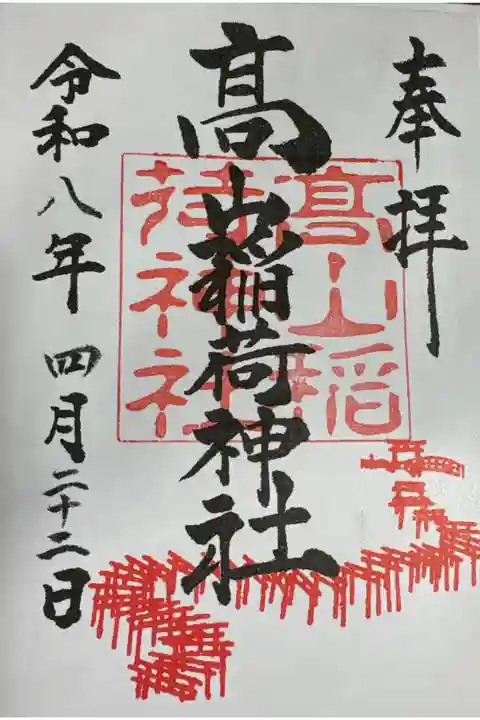 奉拝
髙山稲荷神社
髙山稲
荷神社
令和八年 四月二十二日